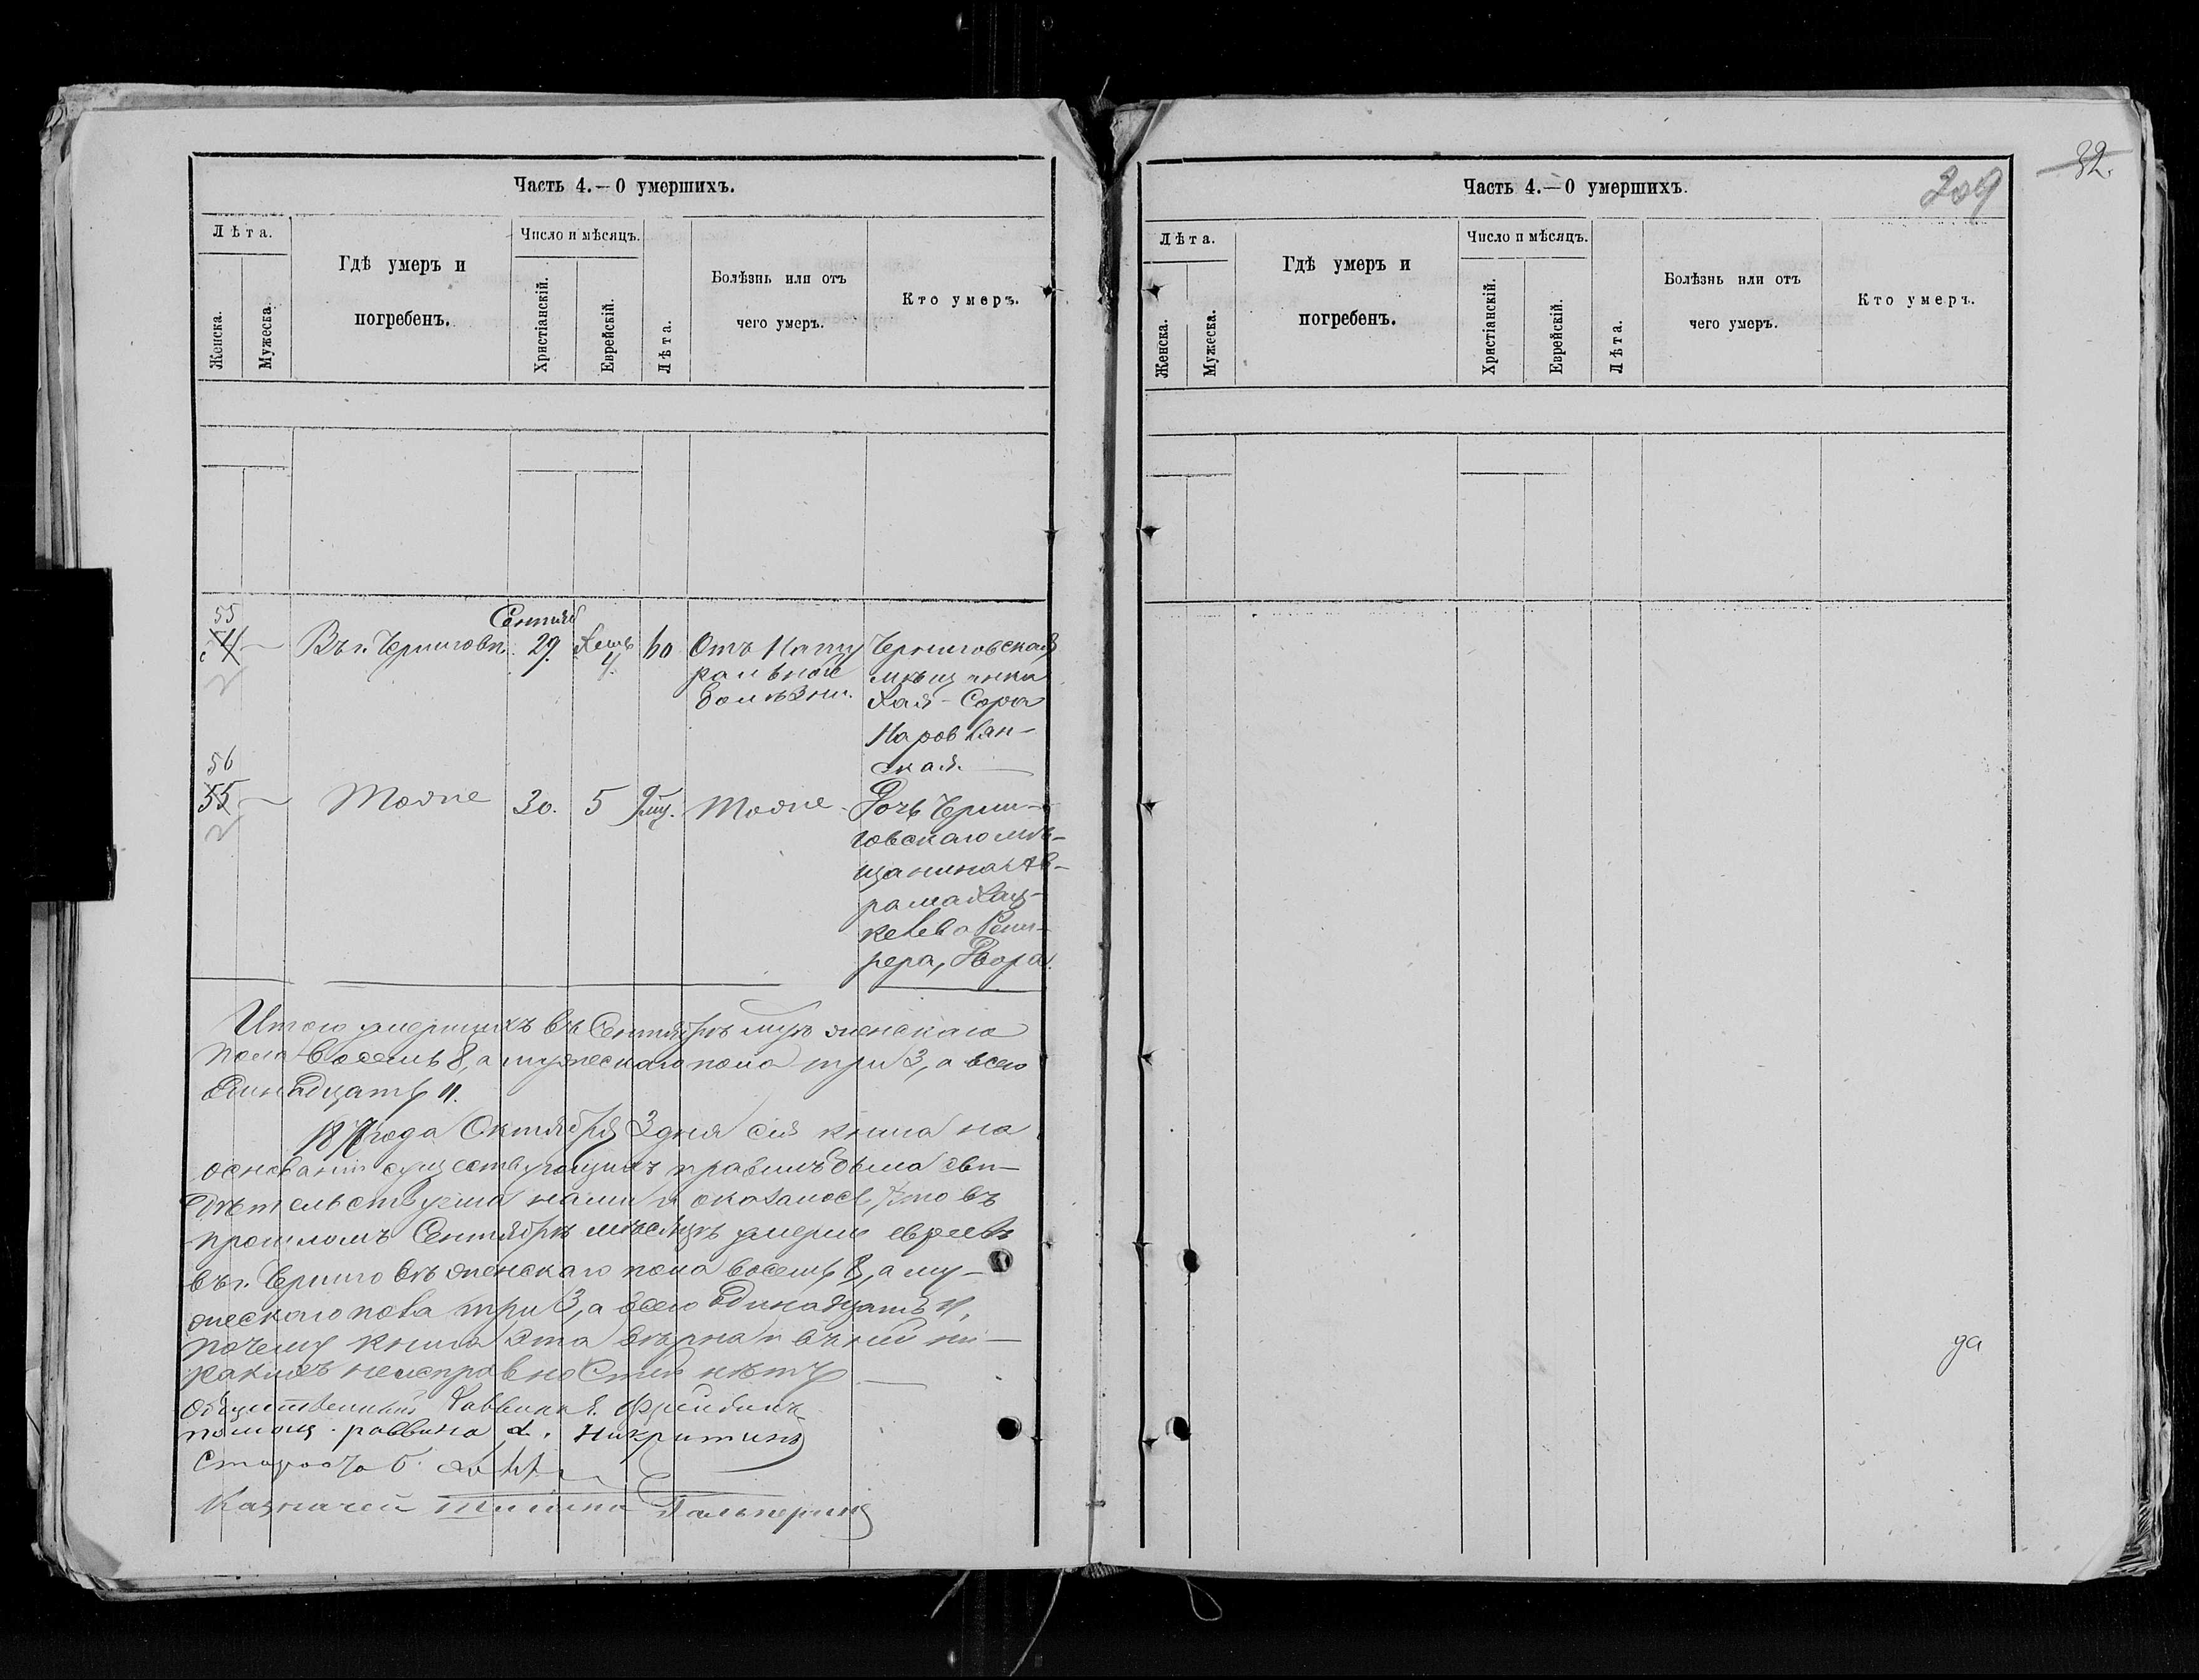 Часть 4.—О умершихъ.
Лѣта.
Женска.
Мужеска.
Гдѣ умеръ и
погребенъ.
Число и мѣсяцъ.
Христіанскій.
Еврейскій.
Лѣта.
Болѣзнь или отъ
чего умеръ.
Кто умеръ.
Сентяб
55
54
Въ г. Черниговѣ
29
Хеш
4.
60
Отъ Нату
ральной
болѣзни.
Черниговская
мѣщанка
Хая-Сора
Наровлян-
ская
56
55
Тоже
30.
5
9 мц.
Тоже
Дочь Черни-
говскаго мѣ-
щанина Ав-
рама Хац-
келева
Двора
Итого умершихъ въ Сентябрѣ м-цѣ женскаго
пола восемь 8, а мужескаго пола три 3, а всего
одинадцать 11.
года Октября 3 дня сія книга на
основаніи существующихъ правилъ была сви-
дѣтельствуема нами и оказалось, что въ
прошломъ Сентябрѣ мѣсяцѣ умерло евреевъ
въ г. Черниговѣ женскаго пола восемь 8, а му-
жескаго пола три 3, а всего одинадцать 11,
почему книга эта вѣрна и въ ней ни-
какихъ неисправностей нѣтъ
Общественный Раввинъ
помощ. раввина Л. Никритинъ
Староста Б.
Казначей Гальперинъ
32.
209
Часть 4.—О умершихъ.
Лѣта.
Женска.
Мужеска.
Гдѣ умеръ и
погребенъ.
Число и мѣсяцъ.
Христіанскій.
Еврейскій.
Лѣта.
Болѣзнь или отъ
чего умеръ.
Кто умеръ.